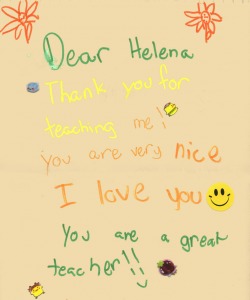 Dear Helena
Thank you for
teaching me!
you are very nice
I love you
You are a great
teacher!!